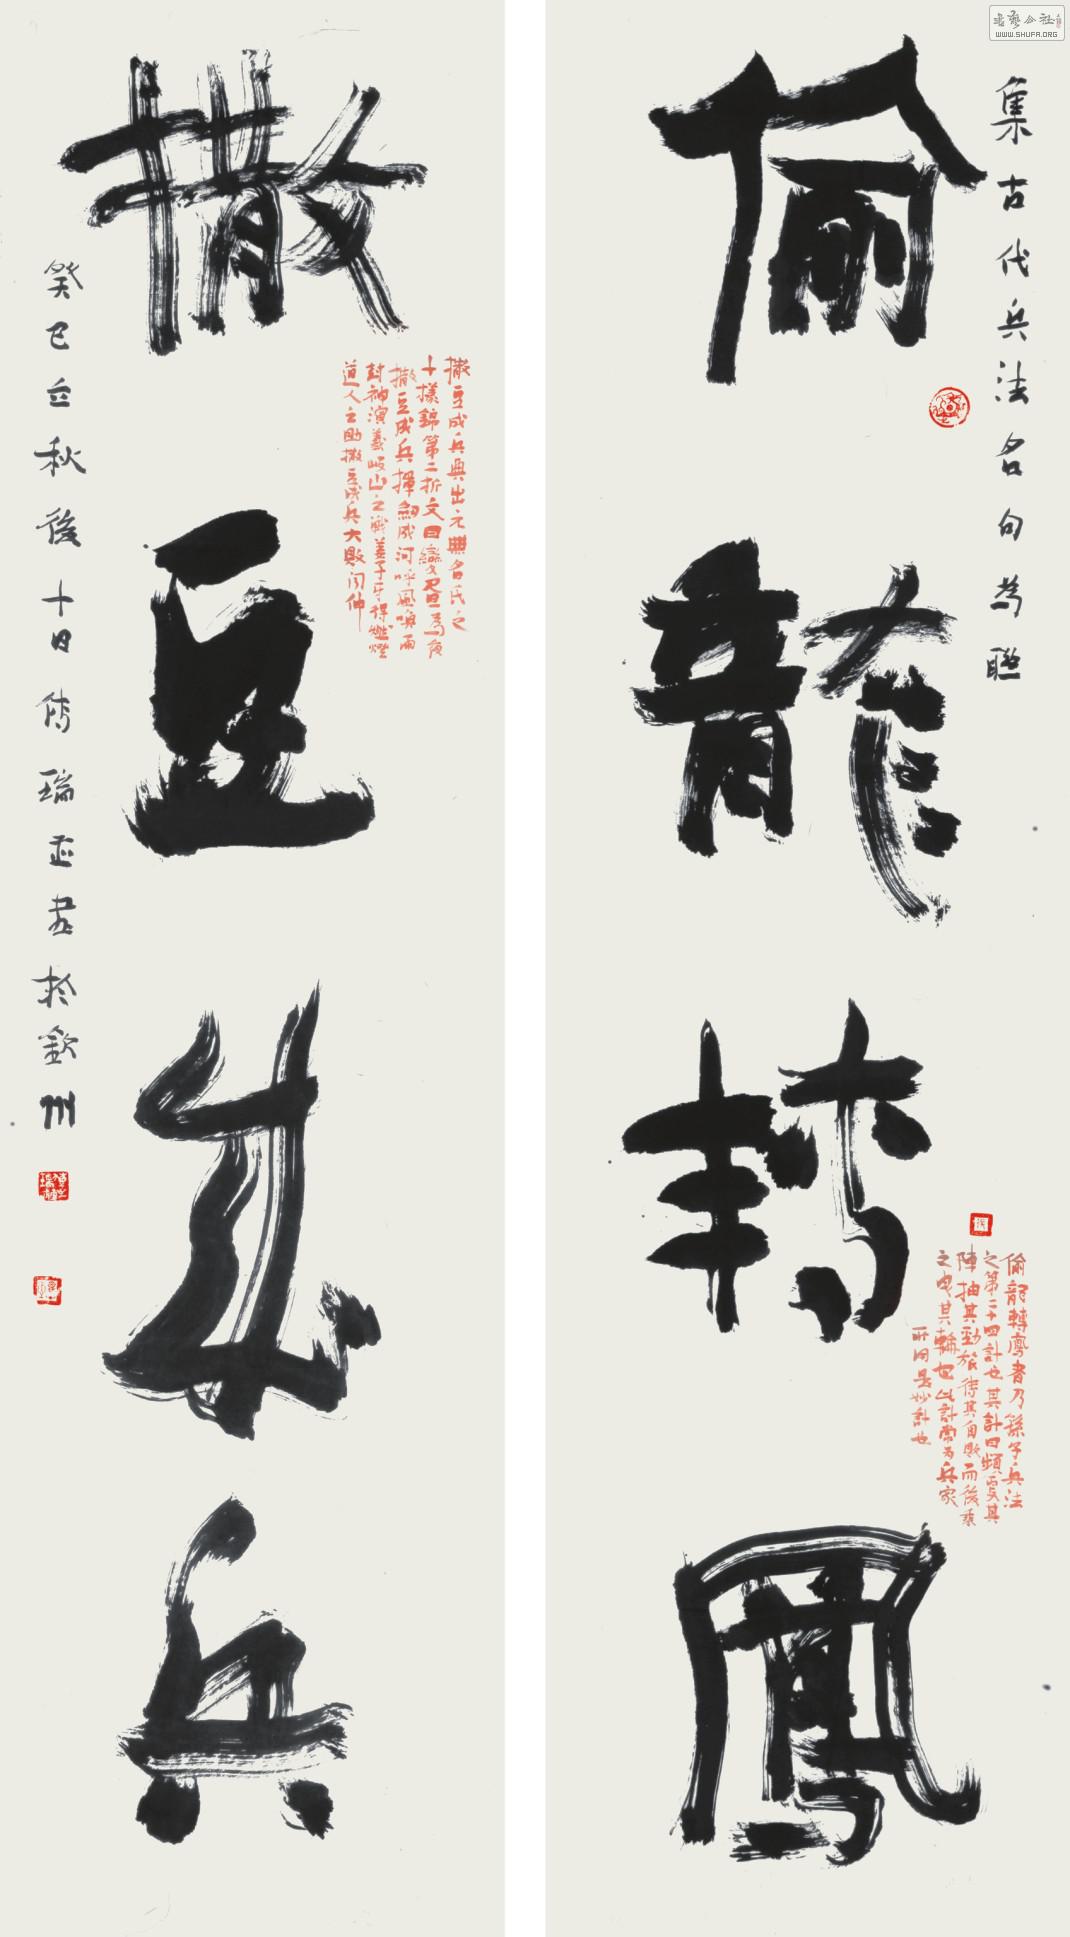 集古代兵法名句為聯
偷龍轉鳳
偷龍轉鳳者乃孫子兵法
之第二十四計也其計曰頻更其
陣抽其勁旅待其自敗而後乘
之曳其輪也此計常為兵家
所用是妙計也
撒豆成兵
撒豆成兵典出元無名氏之
十樣錦第二折文曰變晝為夜
撒豆成兵揮劍成河呼風喚雨
封神演義岐山之戰姜子牙得燃燈
道人之助撒豆成兵大敗聞仲
癸巳立秋後十日傅瑞書於欽州
書藝公社
WWW.SHUFA.ORG